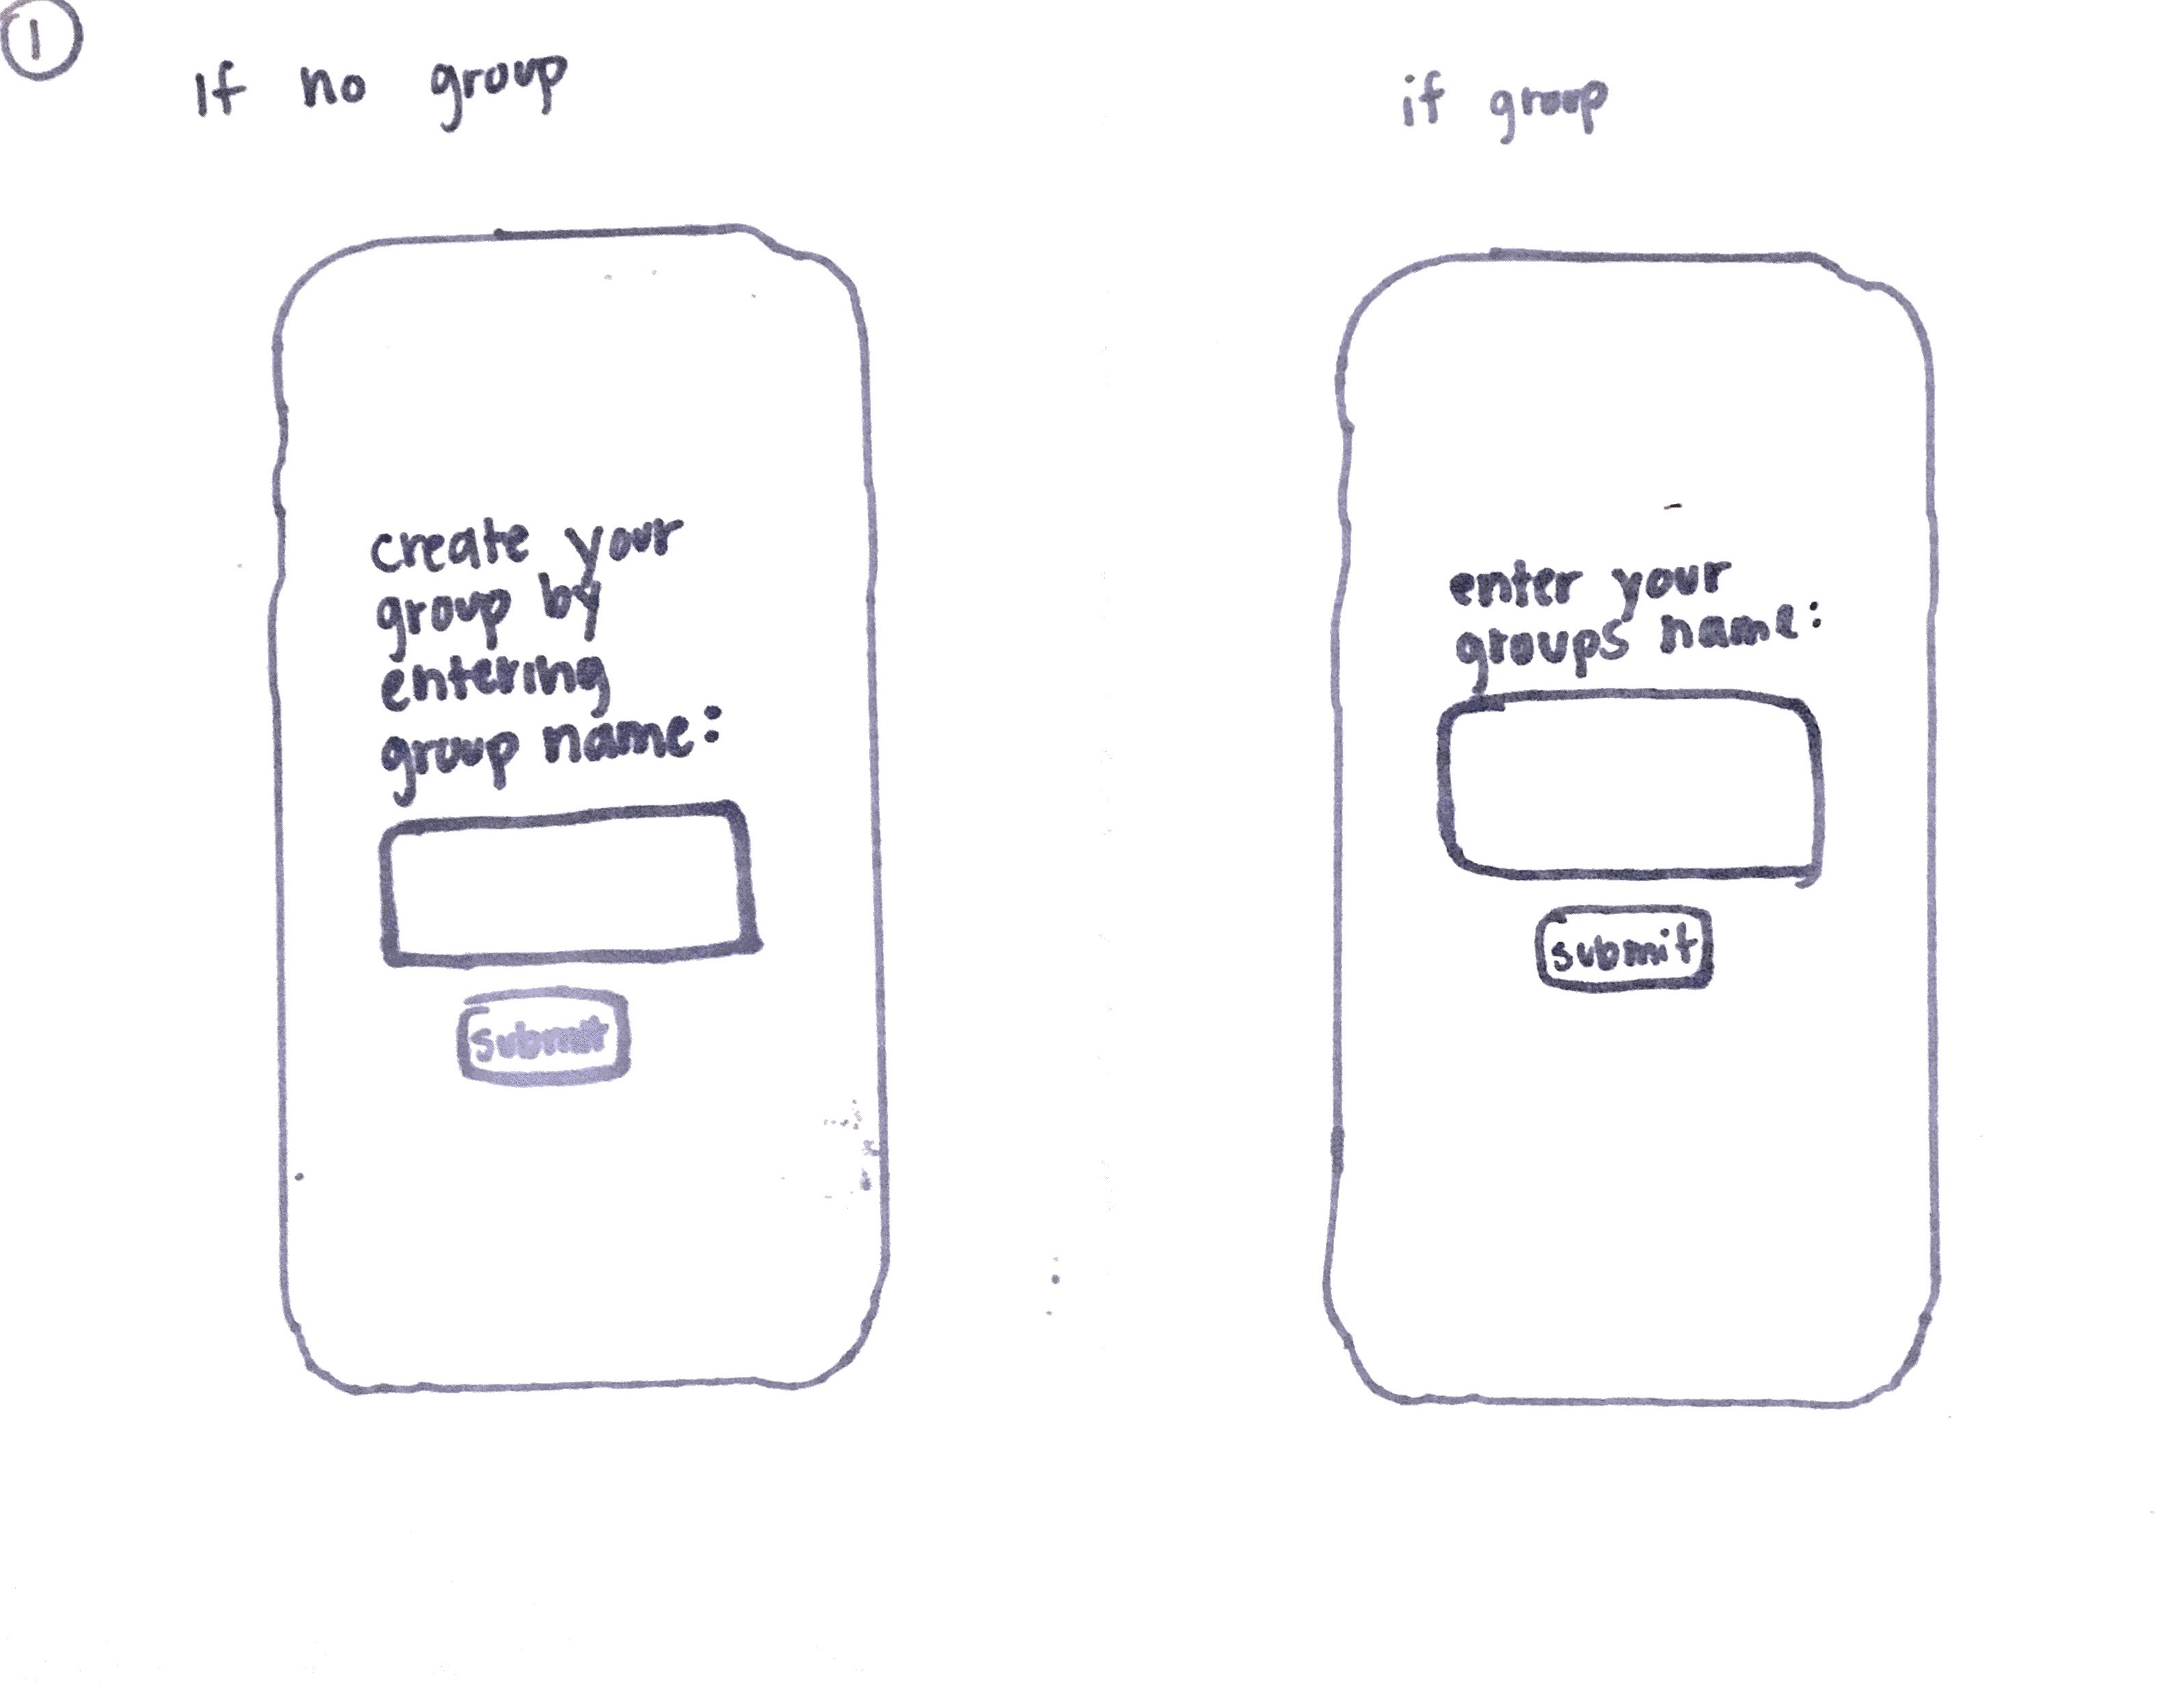 1
If no group
if group
create your
group by
entering
group name:
submit
enter your
groups name:
submit